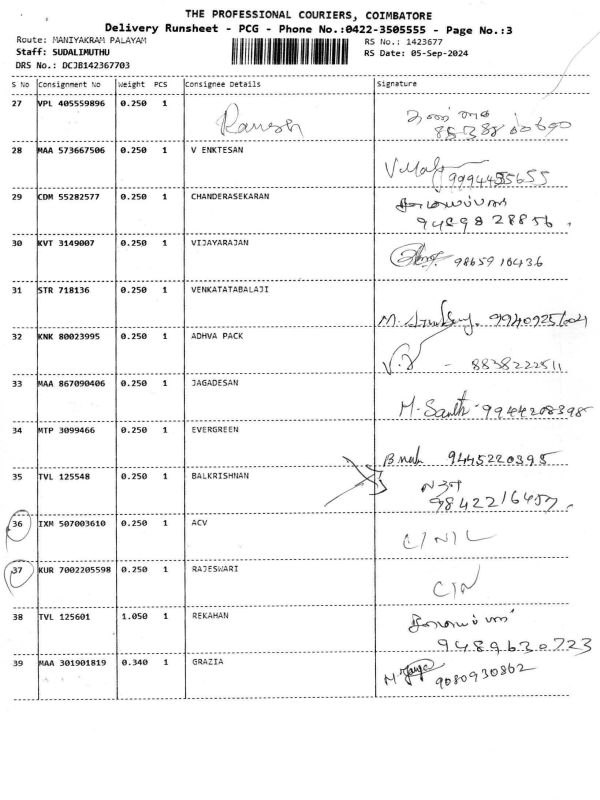 THE PROFESSIONAL COURIERS, COIMBATORE
Delivery Runsheet - PCG - Phone No.:0422-3505555 - Page No.:3
Route: MANIYAKRAM PALAYAM
RS No.: 1423677
Staff: SUDALIMUTHU
RS Date: 05-Sep-2024
DRS No.: DCJB142367703
S No Consignment No Weight PCS Consignee Details Signature
27 VPL 405559896 0.250 1 Ramesh
28 MAA 573667506 0.250 1 V ENKTESAN
9994455655
29 CDM 55282577 0.250 1 CHANDERASEKARAN
9489828856
30 KVT 3149007 0.250 1 VIJAYARAJAN
9865910436
31 STR 718136 0.250 1 VENKATATABALAJI
M.
32 KNK 80023995 0.250 1 ADHVA PACK
- 8838222511
33 MAA 867090406 0.250 1 JAGADESAN
M. Santh - 9944208398
34 MTP 3099466 0.250 1 EVERGREEN
9445220395
35 TVL 125548 0.250 1 BALKRISHNAN
36 IXM 507003610 0.250 1 ACV
C/N/L
37 KUR 7002205598 0.250 1 RAJESWARI
C/N
38 TVL 125601 1.050 1 REKAHAN
9489630723
39 MAA 301901819 0.340 1 GRAZIA
9080930862